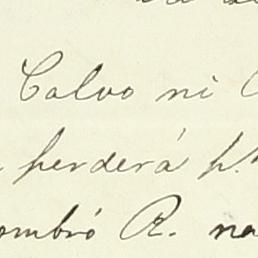 Calvo ni
perderá p.ª
ombró R. na